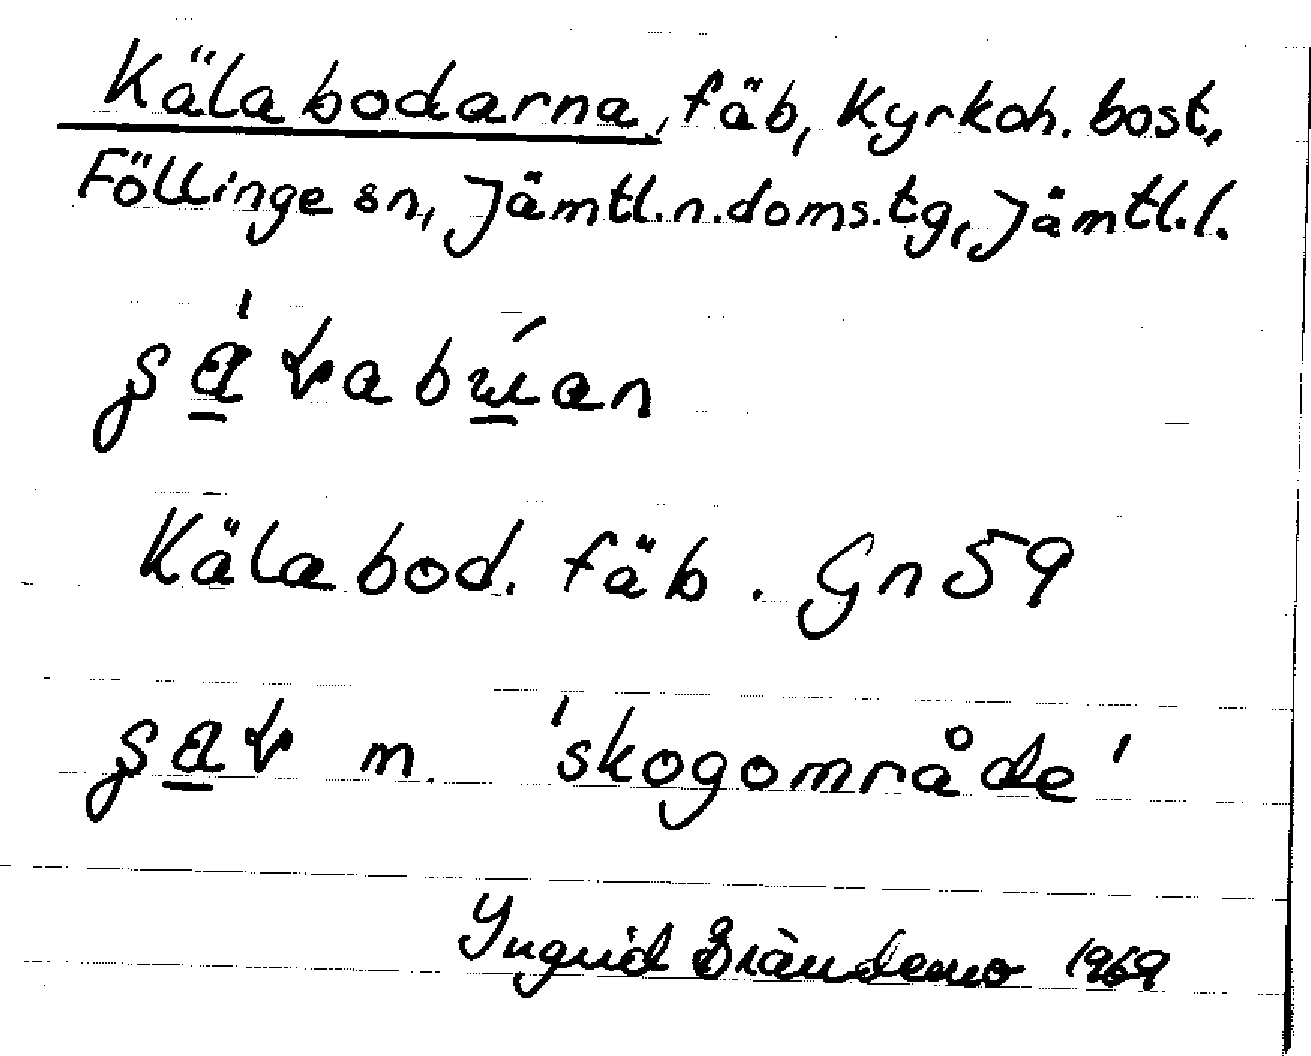 Kälabodarna, fäb, Kyrkoh. bost.
Föllinge sn, Jämtl.n.doms.tg, Jämtl.l.
Kälabod. fäb. Gn 59
m. 'skogområde'
Ingrid Brändemo 1969